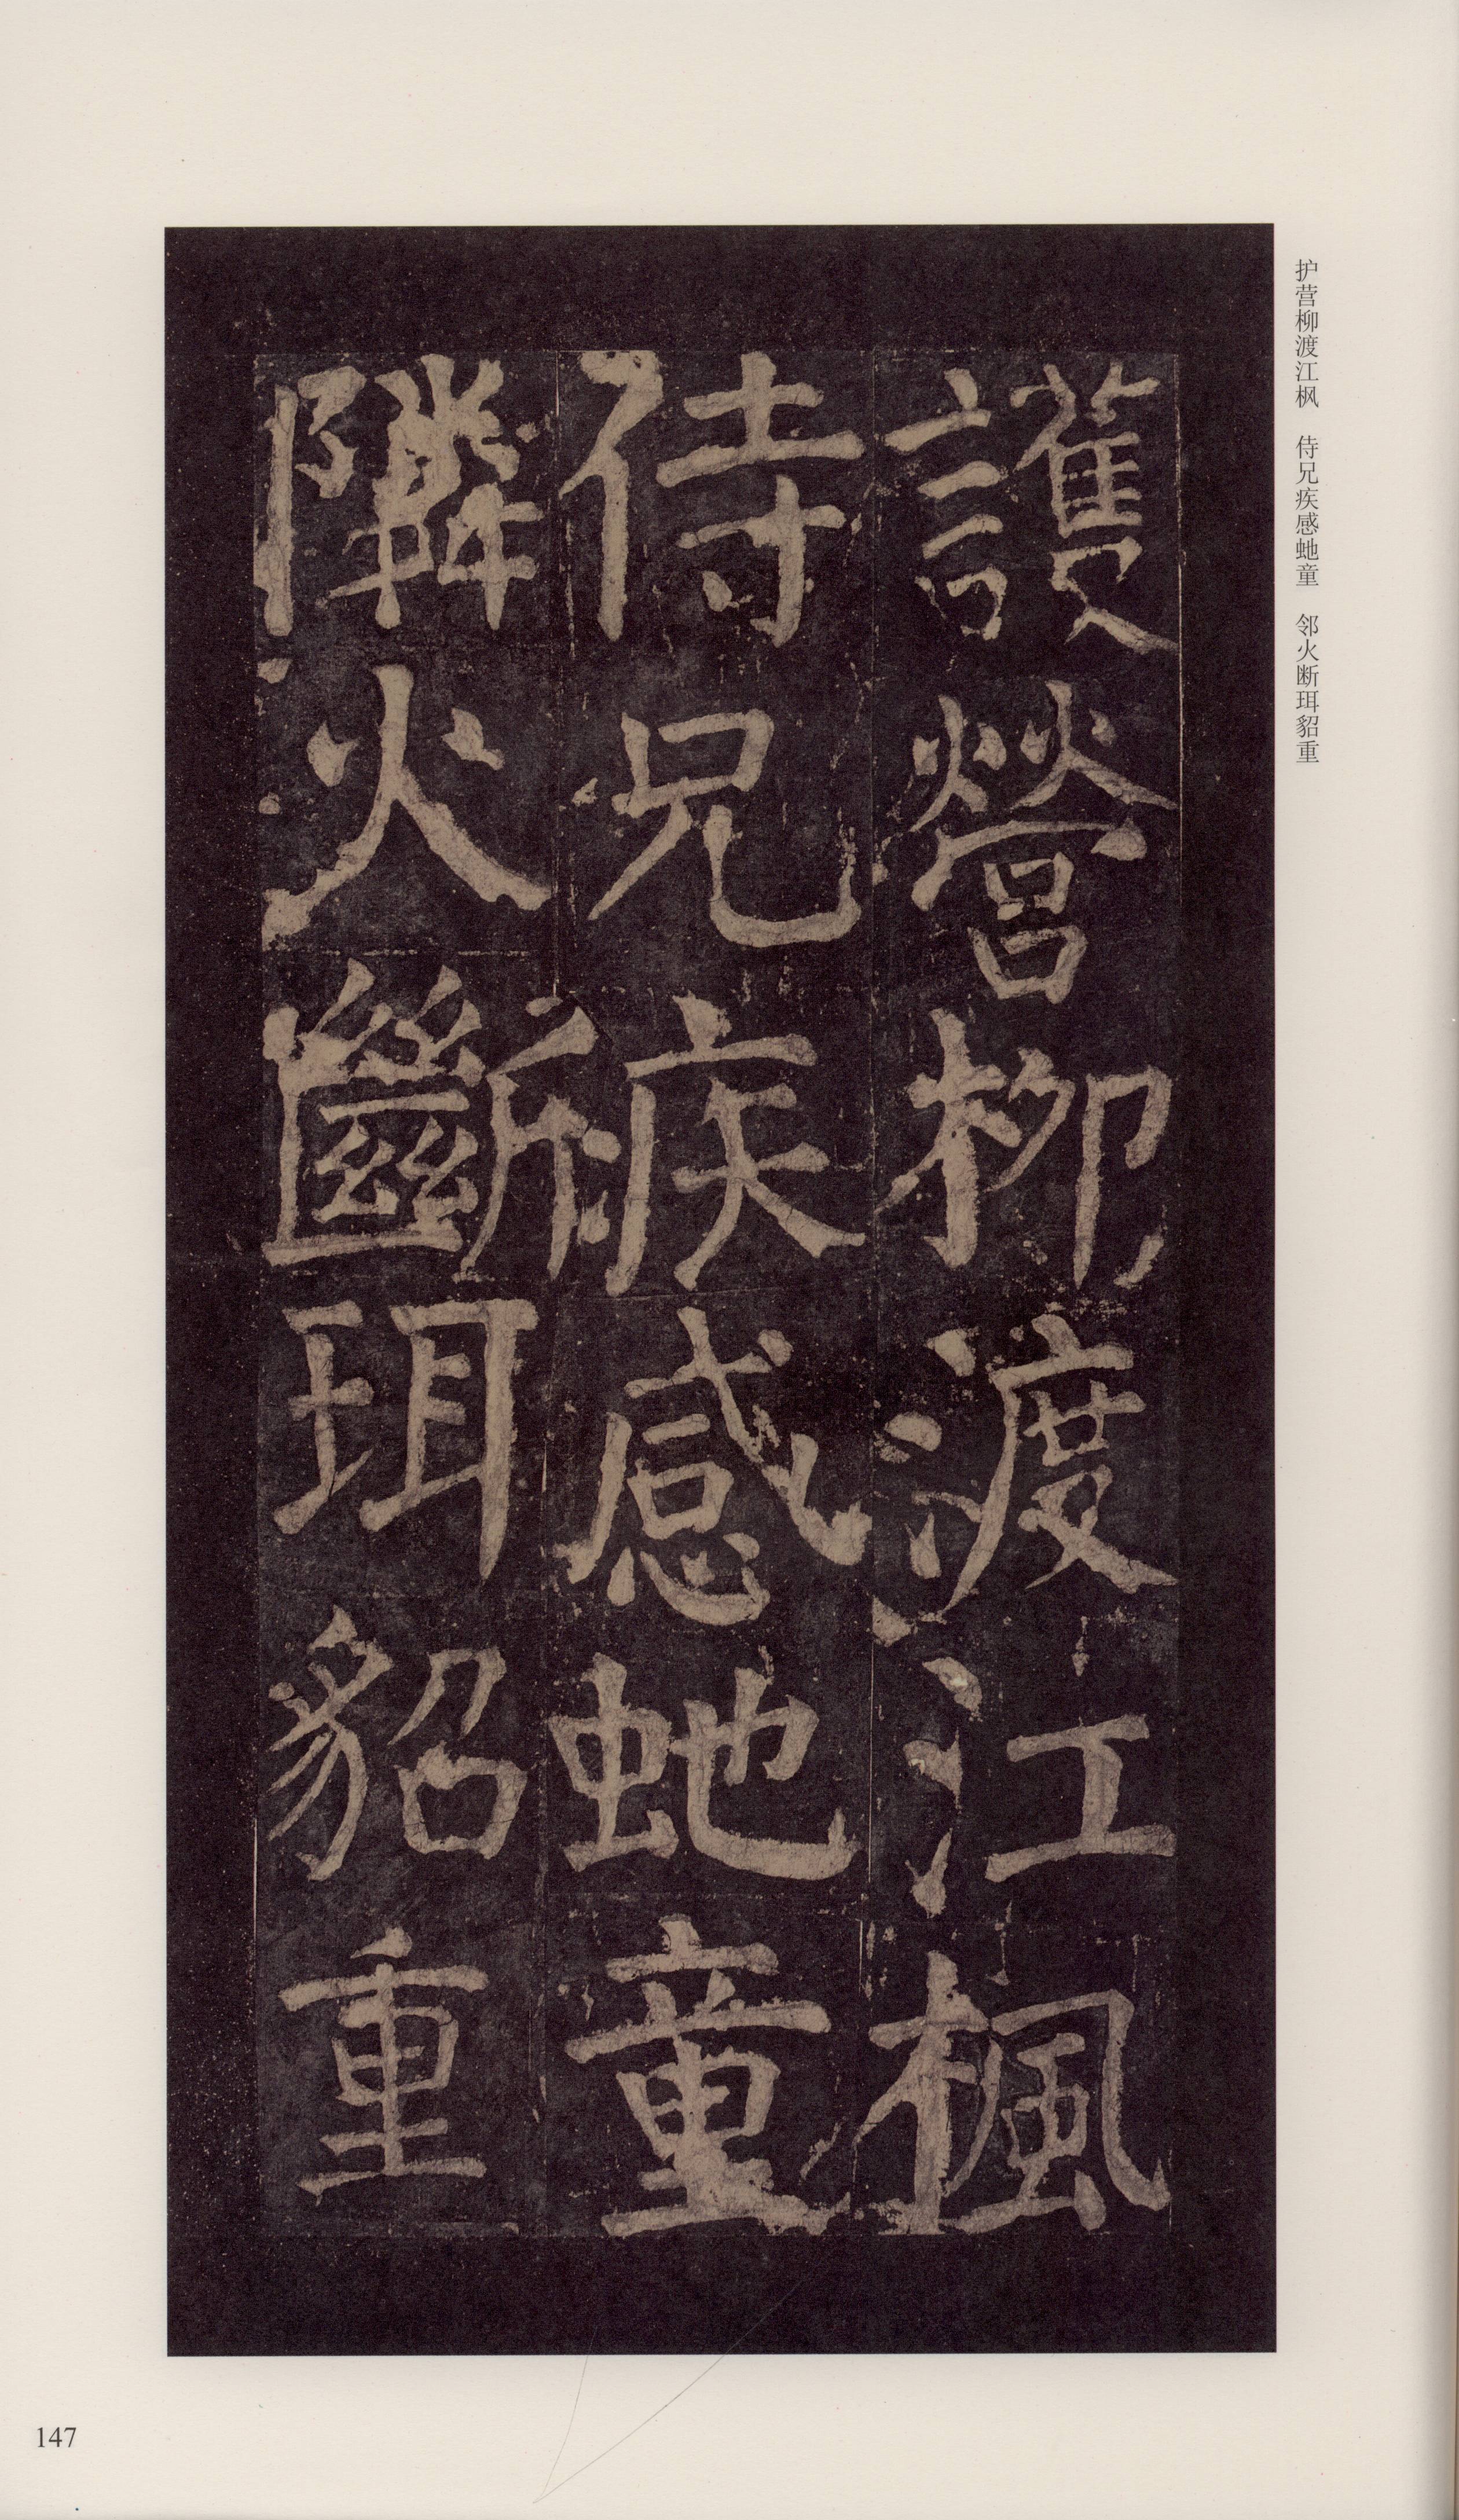 护营柳渡江枫　侍兄疾感虵童　邻火断珥貂重
護營柳渡江楓
侍兄疾感虵童
隣火斷珥貂重
147